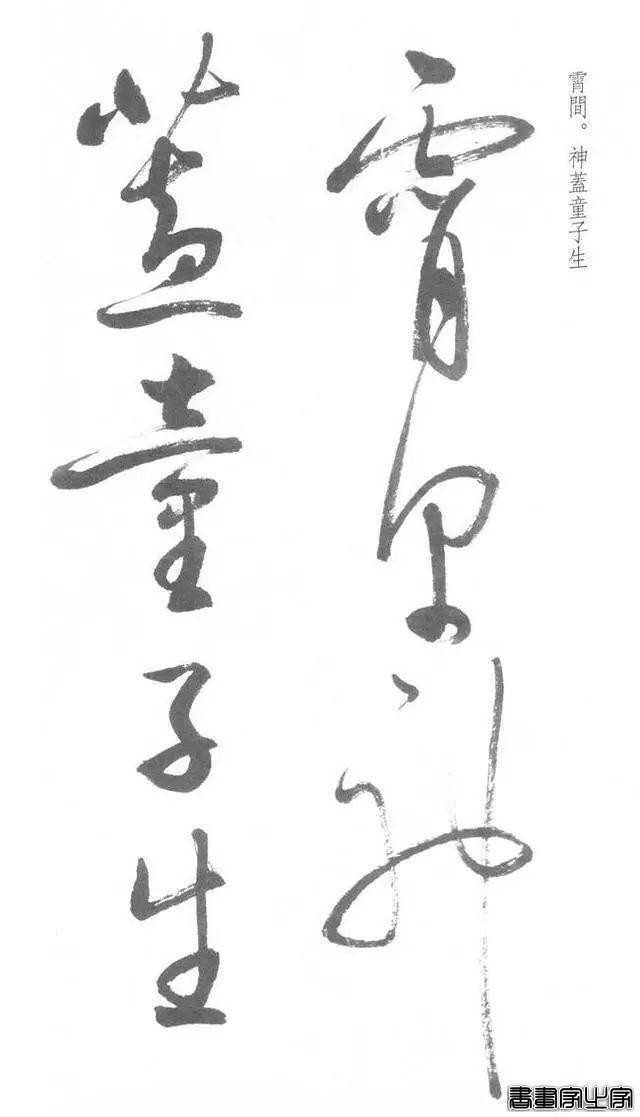 霄間。神蓋童子生
霄間神
蓋童子生
書畫家之家